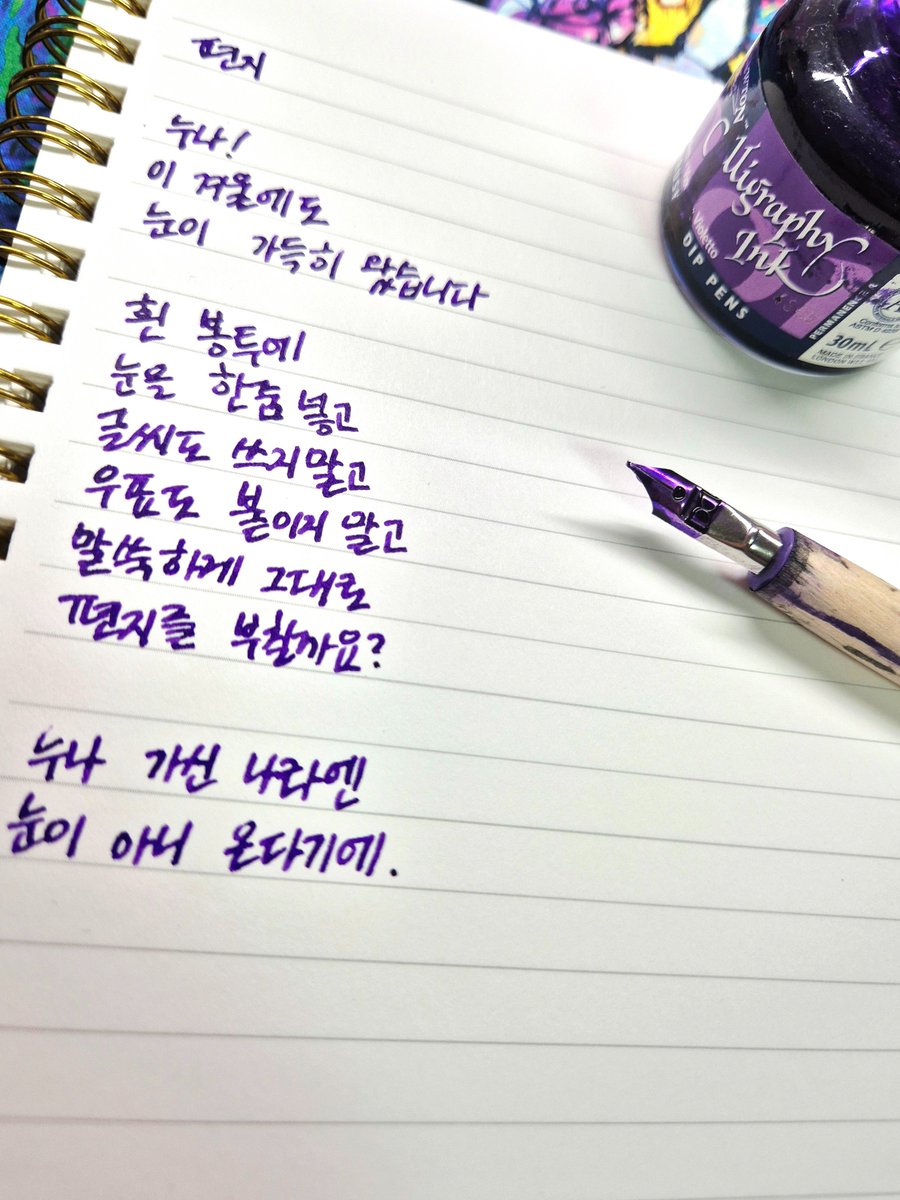 편지
누나!
이 겨울에도
눈이 가득히 왔습니다
흰 봉투에
눈을 한줌 넣고
글씨도 쓰지말고
우표도 붙이지 말고
말쑥하게 그대로
편지를 부칠까요?
누나 가신 나라엔
눈이 아니 온다기에.
Calligraphy
Ink
Violetto
DIP PENS
PERMANENT
30mL
MADE IN FRANCE